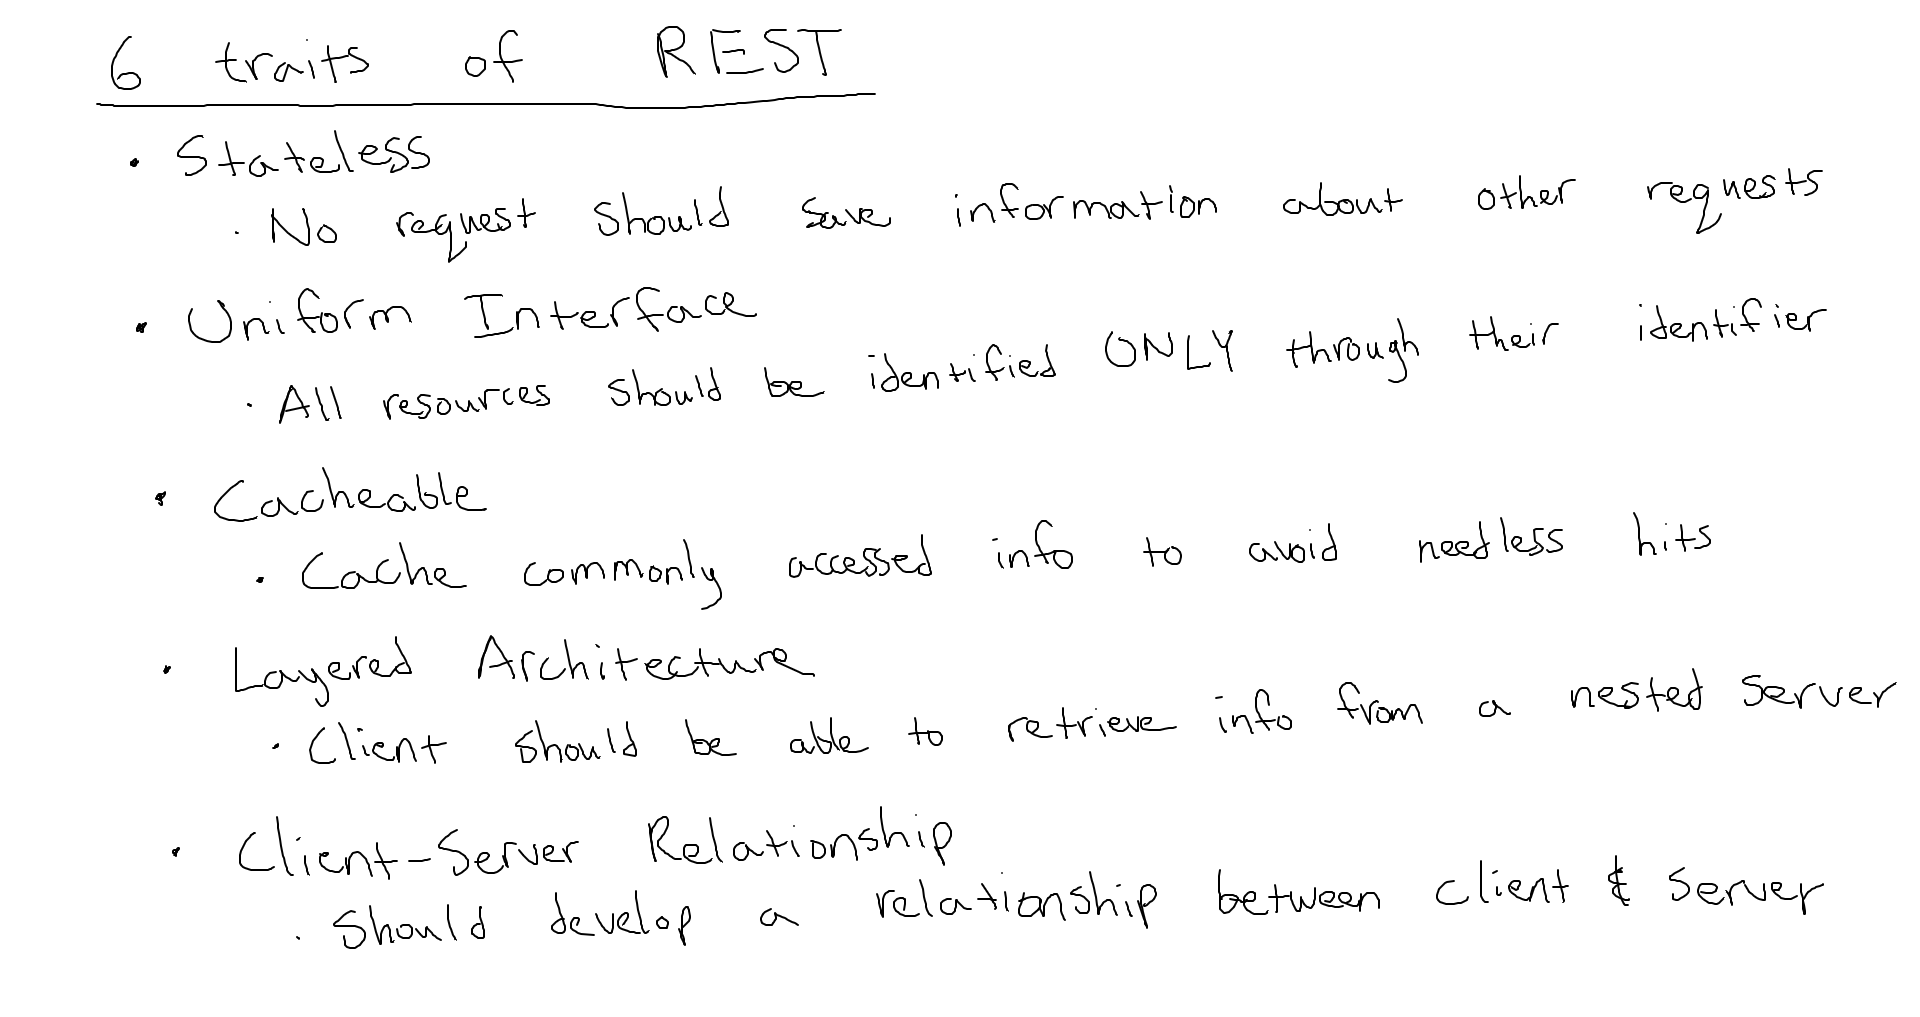 6 traits of REST
• Stateless
• No request should save information about other requests
• Uniform Interface
• All resources should be identified ONLY through their identifier
• Cacheable
• Cache commonly accessed info to avoid needless hits
• Layered Architecture
• Client should be able to retrieve info from a nested server
• Client-Server Relationship
• Should develop a relationship between client & server